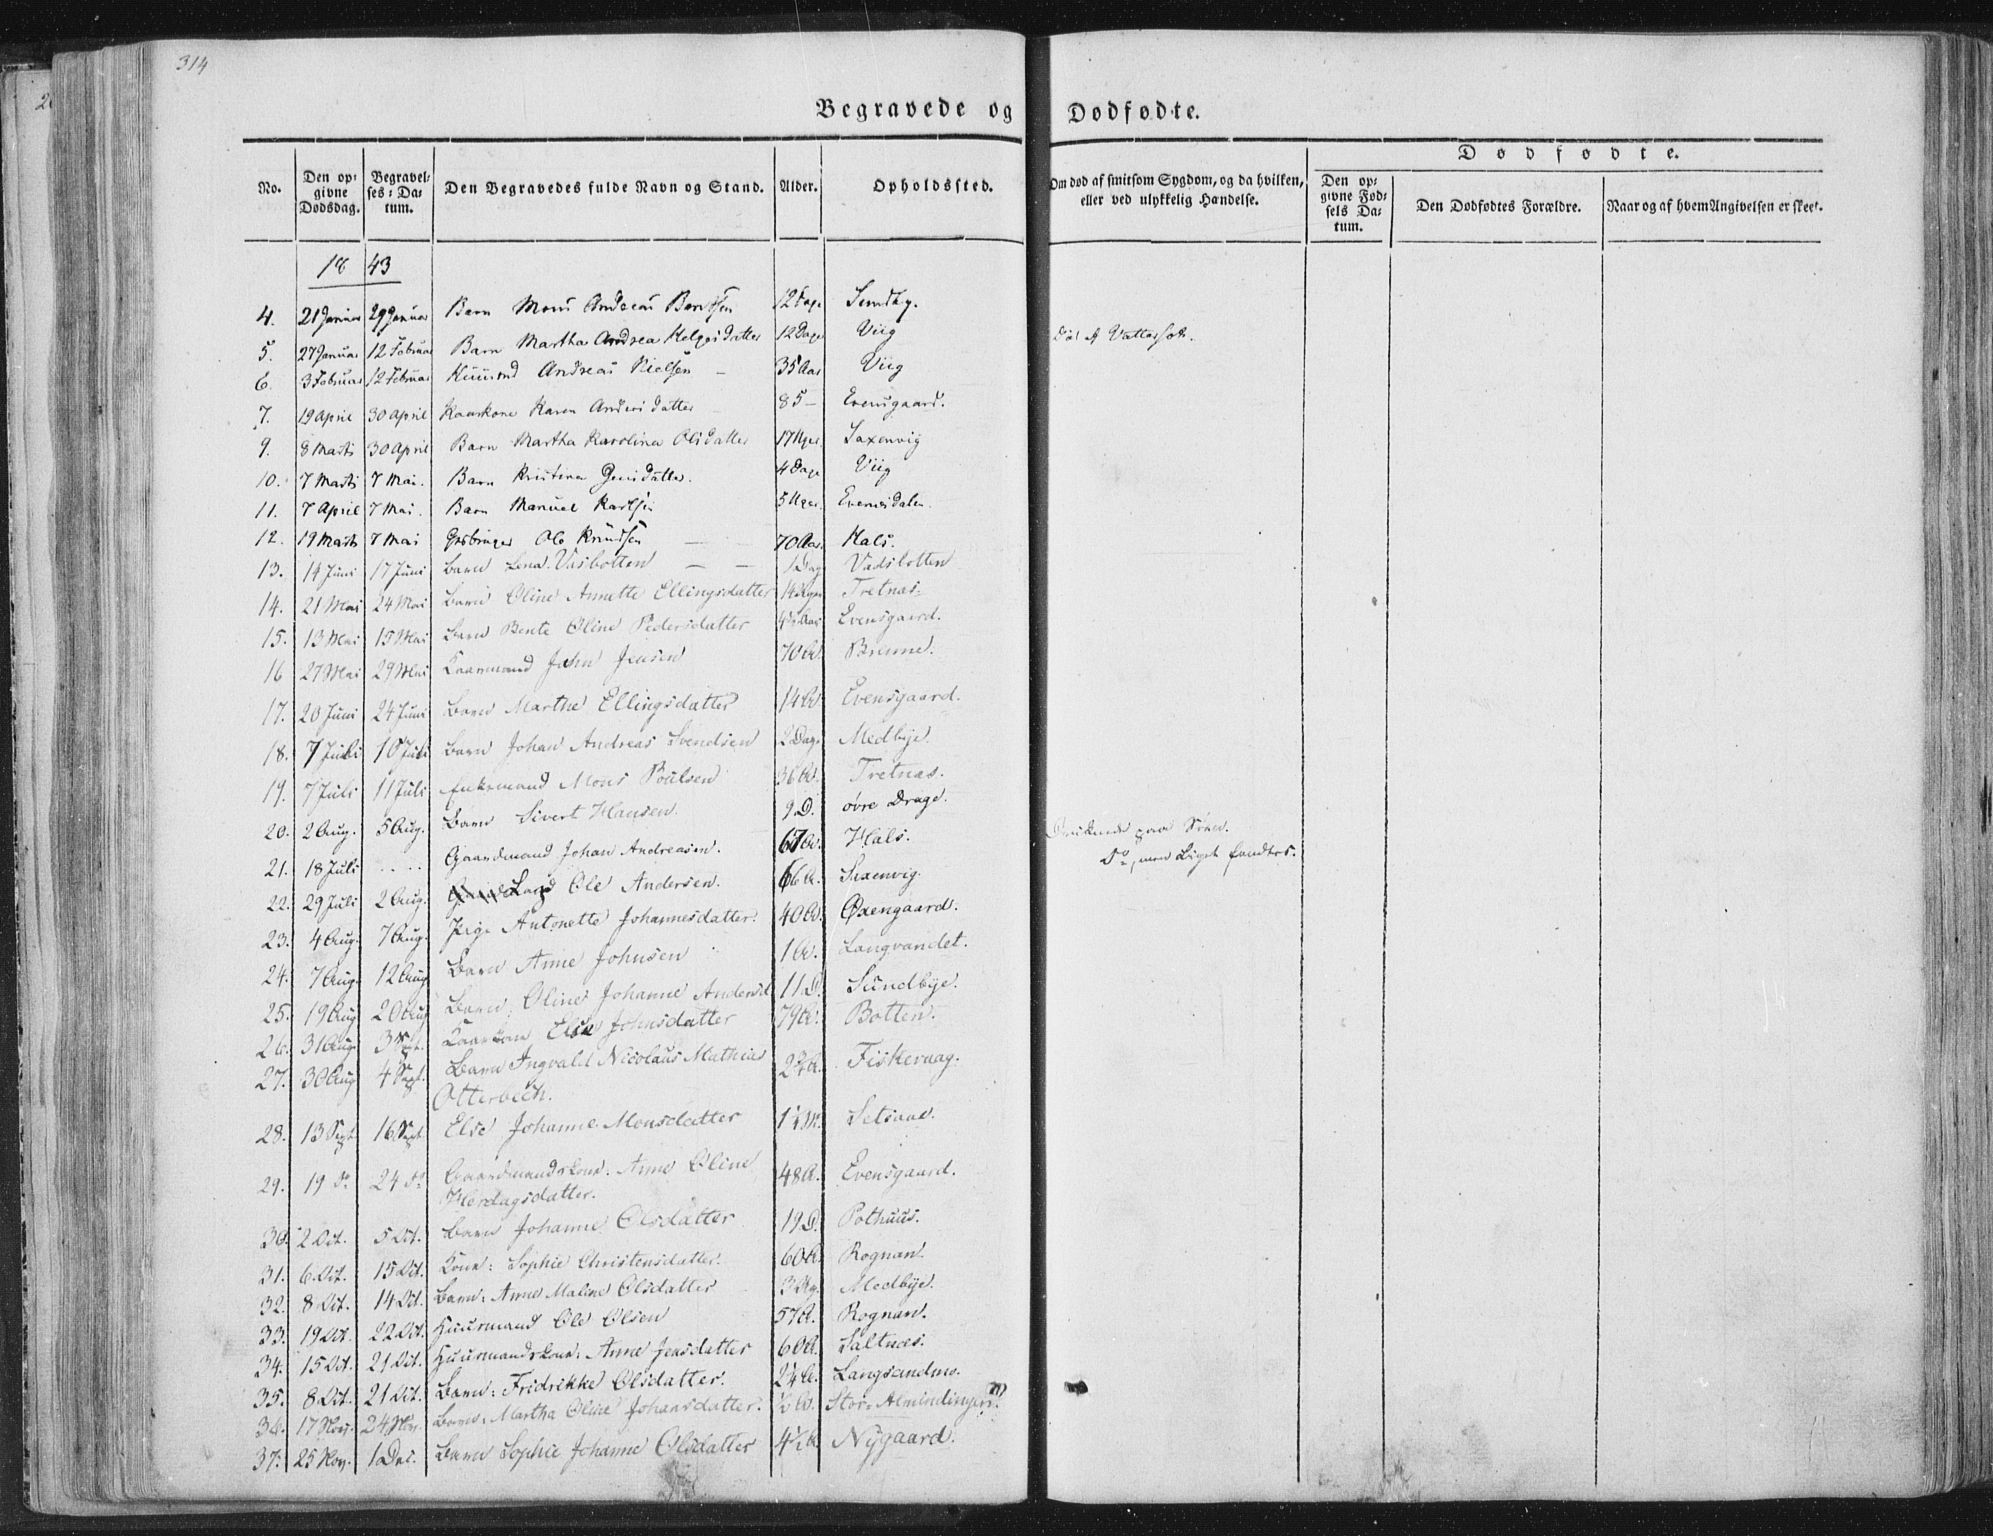 314
Begravede og Dødfødte.
No. Den opgivne Dødsdag. Begravelses-Datum. Den Begravedes fulde Navn og Stand. Alder. Opholdssted. Om død af smitsom Sygdom, og da hvilken, eller ved ulykkelig Hændelse. Dødfødte.
Den opgivne Fødsels Datum. Den Dødfødtes Forældre. Naar og af hvem Angivelsen er skeet.
1843
4. 21 Januar 29 Januar Barn Mons Andreas Berntsen 12 Dage
5. 27 Januar 12 Februar Barn Martha Andrea Helgesdatter 12 Dage Viig
6. 3 Februar 12 Februar Huusmd Andreas Nielsen 35 Aar Viig
7. 19 April 30 April Kaarkone Karen Andersdatter 85 – Evensgaard.
9. 8 Marts 30 April Barn Martha Karolina Olsdatter 17 Uger Saxenvig
10. 7 Marts 7 Mai. Barn Kristina Jensdatter. 4 Dage Viig
11. 7 April 7 Mai. Barn Manuel Karlsen 5 Uger Evensdalen.
12. 19 Marts 7 Mai Ole Knudsen 70 Aar Hals.
13. 14 Juni 17 Juni Barn Lena Vasbotten 1 Dag
14. 21 Mai 24 Mai Barn Oline Annette Ellingsdatter 14 Uger Tretnæs.
15. 13 Mai 15 Mai Barn Bente Oline Pedersdatter Evensgaard.
16 27 Mai 29 Mai Kaarmand John Jensen 70 A. Brenne.
17. 20 Juni 24 Juni Barn Marthe Ellingsdatter 14 A. Evensgaard.
18. 7 Juli 10 Juli Barn Johan Andreas Svendsen 2 Dag. Medbye.
19. 7 Juli 11 Juli Enkemand Mons Poulsen 36 A. Tretnæs.
20. 2 Aug. 5 Aug. Barn Sivert Hansen. 9 D. øvre Drage.
21. 18 Juli .... Gaardmand Johan Andreasen. 67 A. Hals. Druknede paa Søen.
22. 29 Juli 2 Aug. Ole Andersen. 66 A. Saxenvig. Do, men Liget fandtes.
23. 4 Aug. 7 Aug. Pige Antonette Johannesdatter. 40 A. Øxengaard.
24. 7 Aug. 12 Aug Barn Anne Johnsen 1 A. Langvandet.
25. 19 Aug 20 Aug Barn: Oline Johanne Andersd 11 D. Sundbye.
26. 31 Aug 3 Sept. Kaarkone Else Johnsdatter 79 A. Botten.
27. 30 Aug 4 Sept. Barn Ingvald Nicolaus Mathias Otterbech. Fiskevaag.
28. 13 Sept. 16 Sept. Else Johanne Monsdatter Setsaae.
29. 19 do 24 do Gaardmandskone: Anne Oline Herdagsdatter. 48 A. Evensgaard.
30. 2 Oct. 5 Oct. Barn Johanne Olsdatter 19 D. Pothuus.
31. 6 Oct. 15 Oct. Kone: Sophie Christensdatter. 60 A. Rognan.
32. 8 Oct. 14 Oct. Barn: Anne Maline Olsdatter Medbye.
33. 19 Oct. 22 Oct. Huusmand Ole Olsen 57 A. Rognan.
34. 15 Oct. 21 Oct. Huusmandskone: Anne Jensdatter 60 A. Saltnæs.
35. 8 Oct. 21 Oct. Barn: Fridrikke Olsdatter. Langsandmo.
36. 17 Nov. 24 Nov. Barn: Martha Oline Johansdatter. ½ A. Stor-Almindingen.
37. 25 Nov. 1 Dec. Barn Sophie Johanne Olsdatter 4½ A. Nygaard.